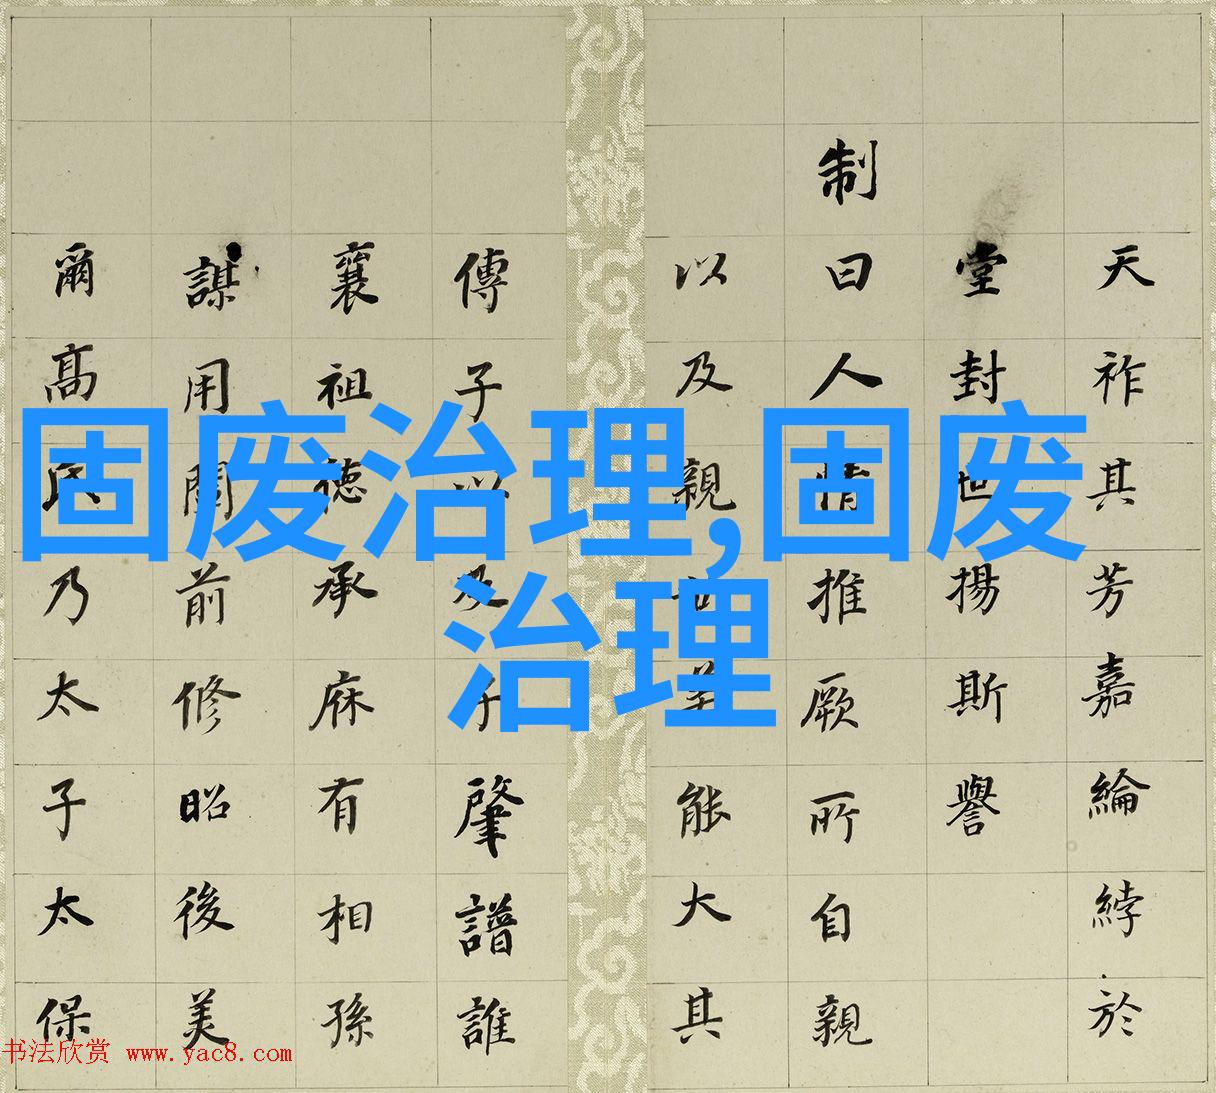 天祚其芳嘉綸綍於
堂封世揚斯譽
制曰人情推厥所自親
以及親能大其
傳子以及子肇譜誰
襄祖德承庥有相孫
謀用闡前修昭後美
爾高氏乃太子太保
固废治理,固废
治理
书法欣赏 www.yac8.com